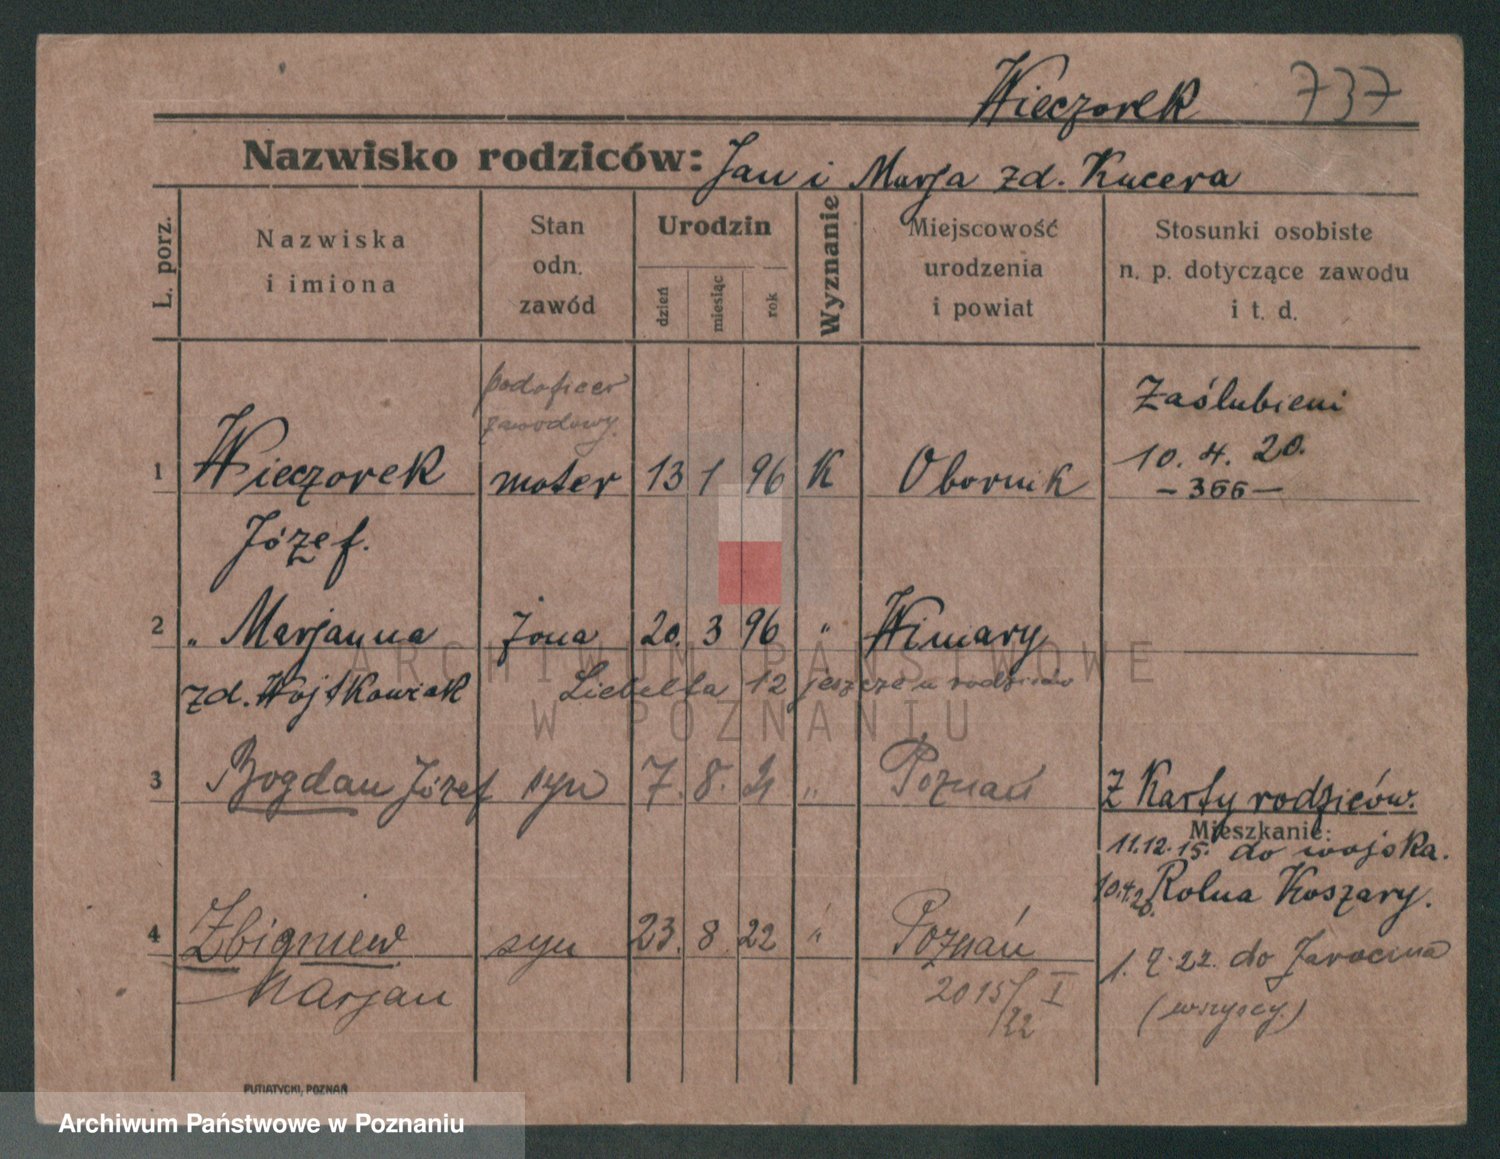 Wieczorek 737
Nazwisko rodziców: Jan i Marja zd. Kucera
L. porz.
Nazwiska
i imiona
Stan
odn.
zawód
Urodzin
dzień
miesiąc
rok
Wyznanie
Miejscowość
urodzenia
i powiat
Stosunki osobiste
n. p. dotyczące zawodu
i t. d.
podoficer
zawodowy.
Zaślubieni
1 Wieczorek moter 13 1 96 K Obornik 10. 4. 20.
— 366 —
Józef.
2 „ Marjanna żona 20. 3 96 „ Winiary
zd. Wojtkowiak Liebelta 12 jeszcze u rodziców
3 Bogdan Józef syn 7. 8. 21 „ Poznań Z Karty rodziców.
Mieszkanie:
11.12.15. do wojska.
10.4.20. Rolna Koszary.
4 Zbigniew syn 23. 8 22 „ Poznań
Marjan
1. 7. 22. do Jarocina
(wszyscy.)
2015/I
/22
PUTIATYCKI, POZNAŃ
ARCHIWUM PAŃSTWOWE
W POZNANIU
Archiwum Państwowe w Poznaniu